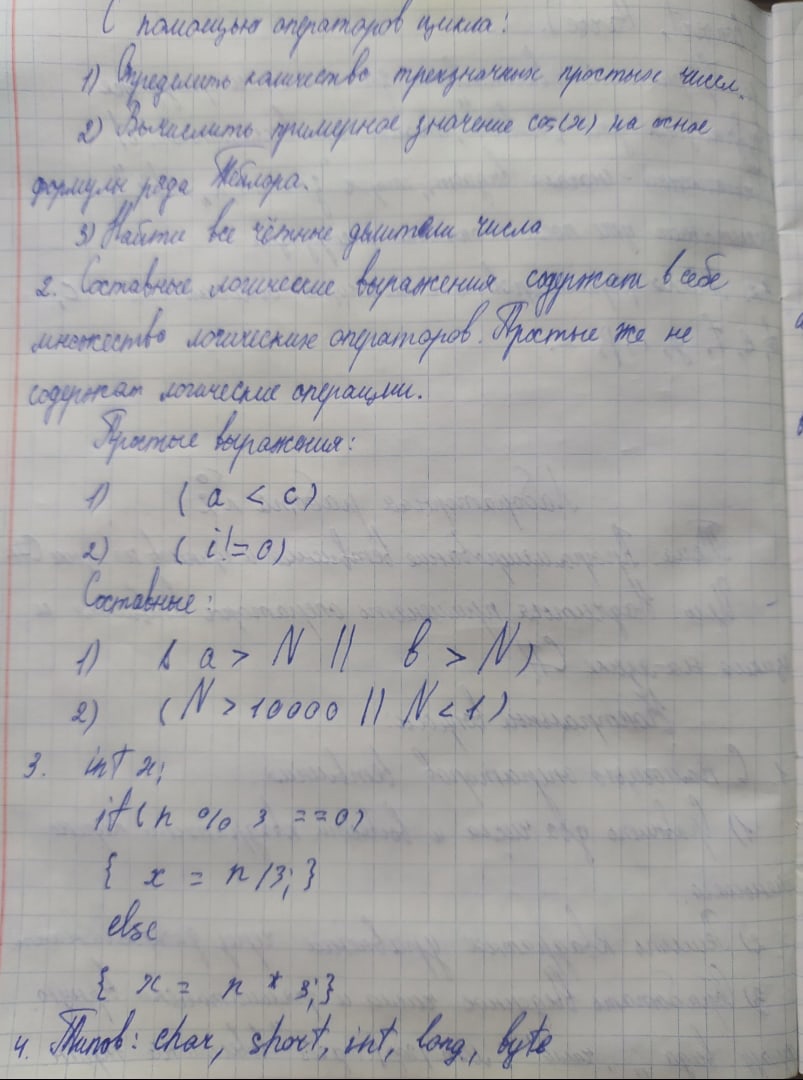 С помощью операторов цикла:
1) Определить количество трехзначных простых чисел.
2) Вычислить примерное значение cos(x) на основе
формулы ряда Тейлора.
3) Найти все чётные делители числа
2. Составные логические выражения содержат в себе
множество логических операторов. Простые же не
содержат логические операции.
Простые выражения:
1) (a < c)
2) (i != 0)
Составные:
1) (a > N || b > N)
2) (N > 10000 || N < 1)
3. int x;
if (n % 3 == 0)
{ x = n / 3; }
else
{ x = n * 3; }
4. Типов: char, short, int, long, byte